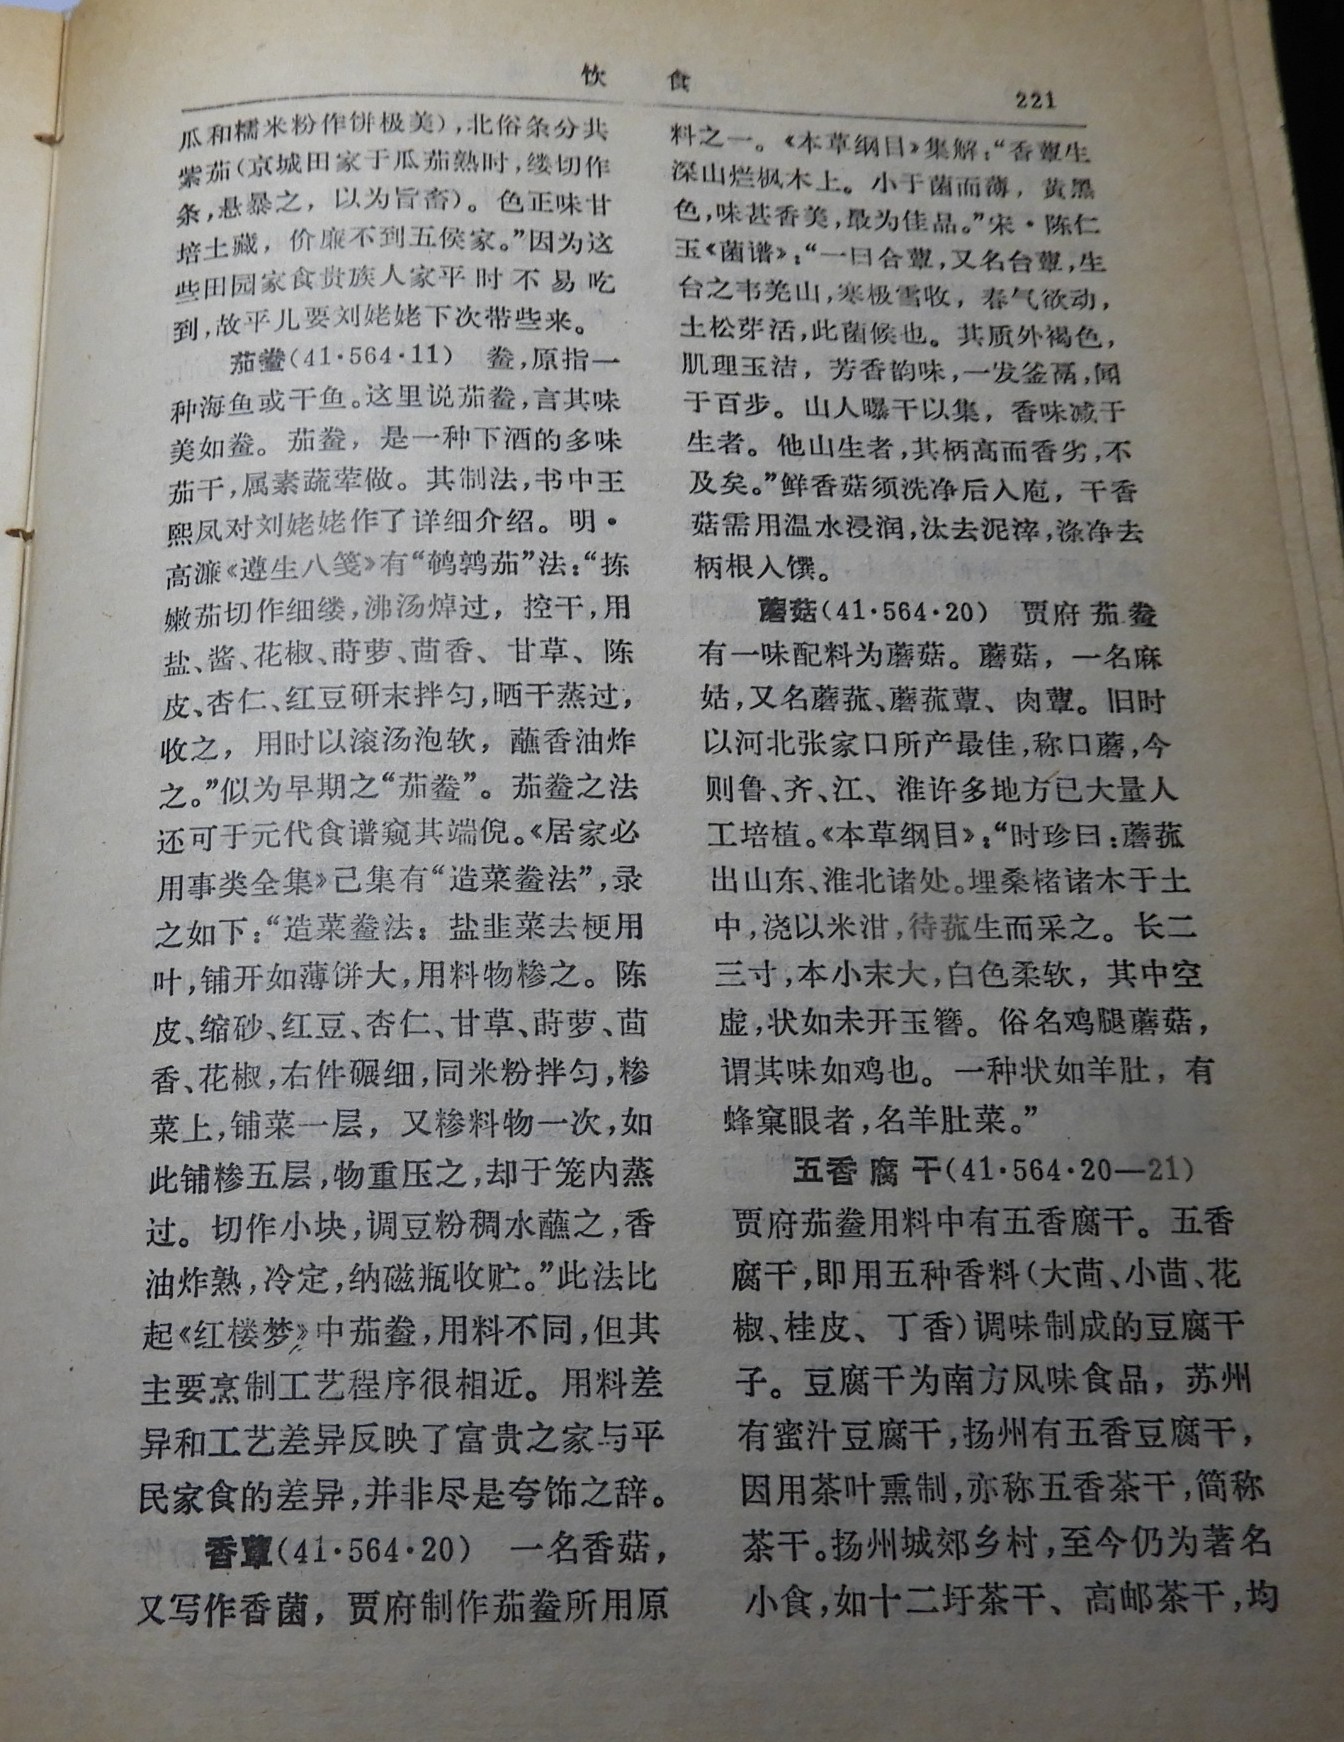 饮食
221
瓜和糯米粉作饼极美),北俗条分共
紫茄(京城田家于瓜茄熟时,缕切作
条,悬暴之,以为旨畜)。色正味甘
培土藏,价廉不到五侯家。”因为这
些田园家食贵族人家平时不易吃
到,故平儿要刘姥姥下次带些来。
茄鲞(41·564·11) 鲞,原指一
种海鱼或干鱼。这里说茄鲞,言其味
美如鲞。茄鲞,是一种下酒的多味
茄干,属素蔬荤做。其制法,书中王
熙凤对刘姥姥作了详细介绍。明·
高濂《遵生八笺》有“鹌鹑茄”法:“拣
嫩茄切作细缕,沸汤焯过,控干,用
盐、酱、花椒、莳萝、茴香、甘草、陈
皮、杏仁、红豆研末拌匀,晒干蒸过,
收之,用时以滚汤泡软,蘸香油炸
之。”似为早期之“茄鲞”。茄鲞之法
还可于元代食谱窥其端倪。《居家必
用事类全集》己集有“造菜鲞法”,录
之如下:“造菜鲞法:盐韭菜去梗用
叶,铺开如薄饼大,用料物糁之。陈
皮、缩砂、红豆、杏仁、甘草、莳萝、茴
香、花椒,右件碾细,同米粉拌匀,糁
菜上,铺菜一层,又糁料物一次,如
此铺糁五层,物重压之,却于笼内蒸
过。切作小块,调豆粉稠水蘸之,香
油炸熟,冷定,纳磁瓶收贮。”此法比
起《红楼梦》中茄鲞,用料不同,但其
主要烹制工艺程序很相近。用料差
异和工艺差异反映了富贵之家与平
民家食的差异,并非尽是夸饰之辞。
香蕈(41·564·20) 一名香菇,
又写作香菌,贾府制作茄鲞所用原
料之一。《本草纲目》集解:“香蕈生
深山烂枫木上。小于菌而薄,黄黑
色,味甚香美,最为佳品。”宋·陈仁
玉《菌谱》:“一曰合蕈,又名台蕈,生
台之韦羌山,寒极雪收,春气欲动,
土松芽活,此菌候也。其质外褐色,
肌理玉洁,芳香韵味,一发釜鬲,闻
于百步。山人曝干以集,香味减于
生者。他山生者,其柄高而香劣,不
及矣。”鲜香菇须洗净后入庖,干香
菇需用温水浸润,汰去泥滓,涤净去
柄根入馔。
蘑菇(41·564·20) 贾府茄鲞
有一味配料为蘑菇。蘑菇,一名麻
姑,又名蘑菰、蘑菰蕈、肉蕈。旧时
以河北张家口所产最佳,称口蘑,今
则鲁、齐、江、淮许多地方已大量人
工培植。《本草纲目》:“时珍曰:蘑菰
出山东、淮北诸处。埋桑楮诸木于土
中,浇以米泔,待菰生而采之。长二
三寸,本小末大,白色柔软,其中空
虚,状如未开玉簪。俗名鸡腿蘑菇,
谓其味如鸡也。一种状如羊肚,有
蜂窠眼者,名羊肚菜。”
五香腐干(41·564·20—21)
贾府茄鲞用料中有五香腐干。五香
腐干,即用五种香料(大茴、小茴、花
椒、桂皮、丁香)调味制成的豆腐干
子。豆腐干为南方风味食品,苏州
有蜜汁豆腐干,扬州有五香豆腐干,
因用茶叶熏制,亦称五香茶干,简称
茶干。扬州城郊乡村,至今仍为著名
小食,如十二圩茶干、高邮茶干,均